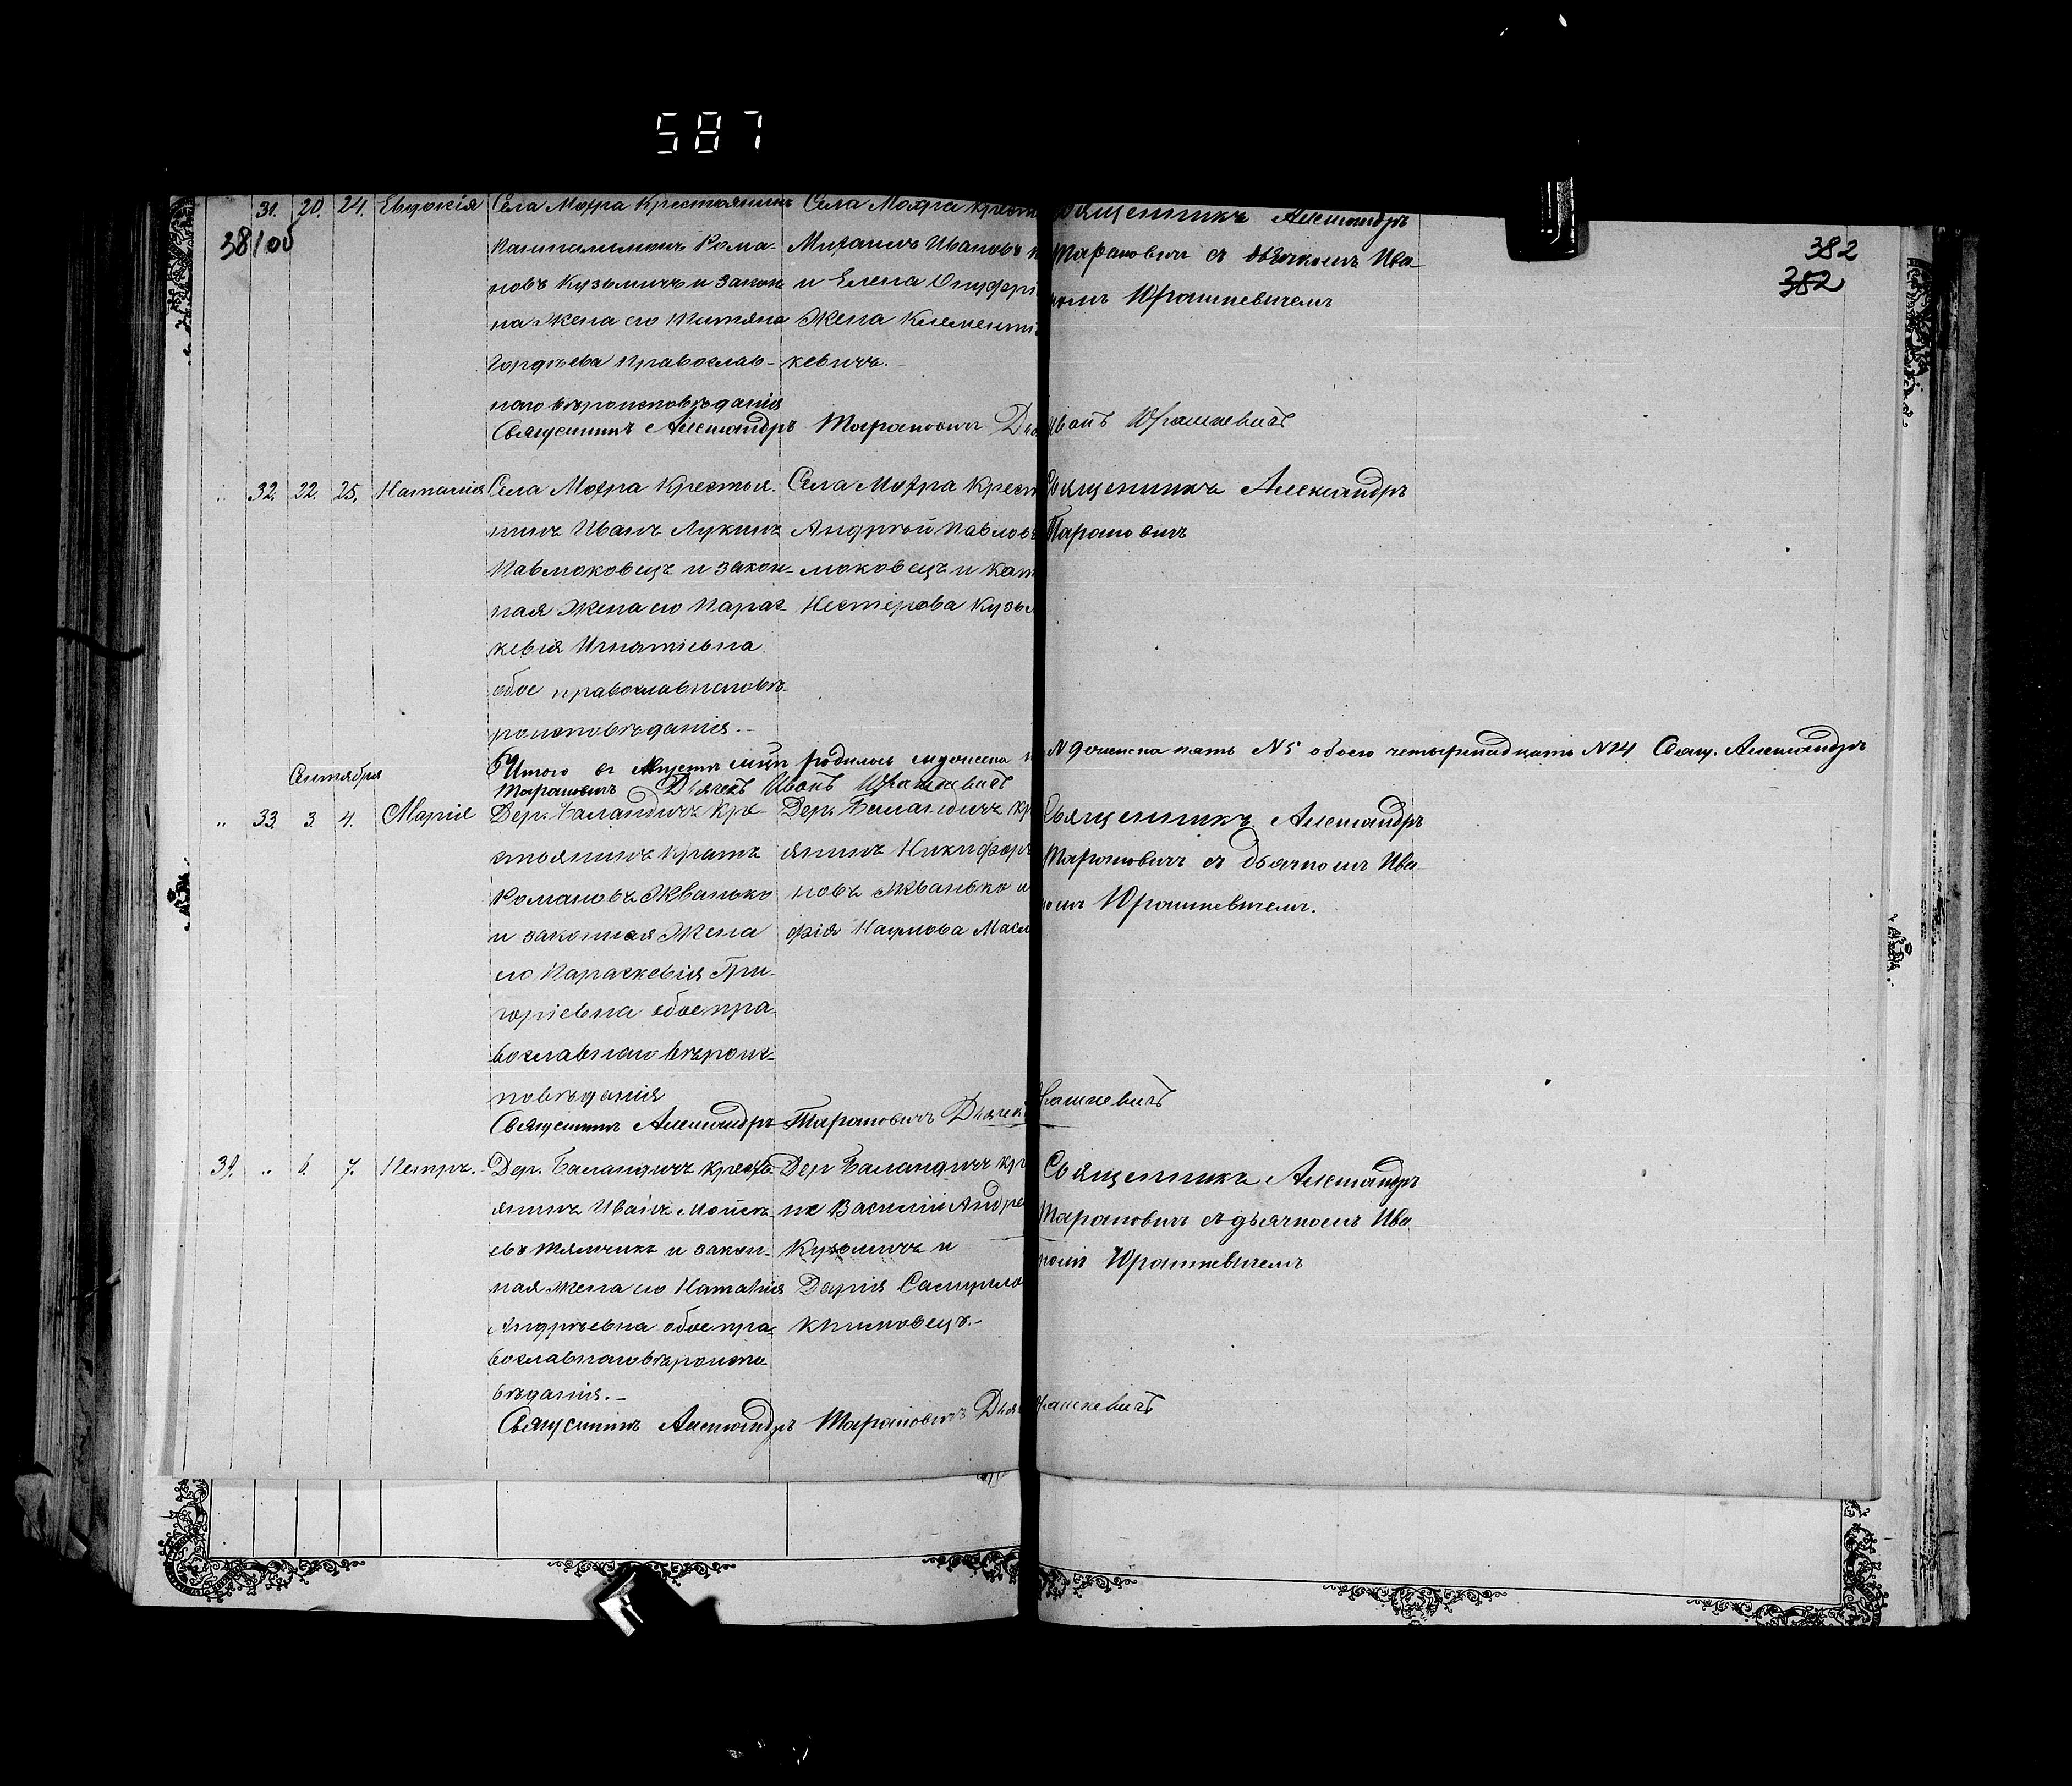 587
381об
382
382
31. 20. 24. Евдокія
Села Мохра Крестьянинъ
Константинъ Рома-
новъ Кузьмичъ и закон
на жена его Татьяна
Гордѣева Православ-
наго вѣроисповѣданія
Села Мохра Крест
Михаилъ Ивановъ
и Елена Онуфрі
жена Климентія
кевичъ.
Священникъ Александръ
Тарановичъ съ дьячкомъ Ива-
номъ Юрашкевичемъ
Священникъ Александръ Тарановичъ Дья
Иванъ Юрашкевичъ
32. 22. 25. Наталія
Села Мохра Крестья-
нинъ Иванъ Лукинъ
Павлюковецъ и закон-
ная жена его Парас-
кевія Игнатіевна
обое православнаго вѣ-
роисповѣданія.-
Села Мохра Крест
Андрей Павловъ
люковецъ и Кат
Нестерова Кузь
Священникъ Александръ
Тарановичъ
Итого въ Августѣ мцѣ родилось мужеска
N 9 женска пять N 5 обоего четырнадцать N 14 Свящ. Александръ
Тарановичъ Дьячекъ Иванъ Юрашкевичъ
Сентября
33. 3. 4. Марія
Дер. Баландичъ Кре-
стьянинъ
Романовъ Жванько
и законная жена
его Параскевія Гри-
горіевна обое пра-
вославнаго вѣроис-
повѣданія
Дер. Баландичъ Кр
янинъ Никифоръ
новъ Жванько и
фія Наумова
Священникъ Александръ
Тарановичъ съ дьячкомъ Ива-
номъ Юрашкевичемъ.
Священникъ Александръ Тарановичъ Дьячекъ
рашкевичъ
39. 6. 7. Петръ.
Дер. Баландичъ Кресть-
янинъ Иванъ Моисе-
евъ и закон-
ная жена его Наталія
Андреевна обое пра-
вославнаго вѣроиспо
вѣданія.-
Дер Баландичъ Кр
Василій Андре
Кузьмичъ и
Дарія
Климовецъ.-
Священникъ Александръ
Тарановичъ съ дьячкомъ Ива-
номъ Юрашкевичемъ
Священникъ Александръ Тарановичъ Дья
рашкевичъ